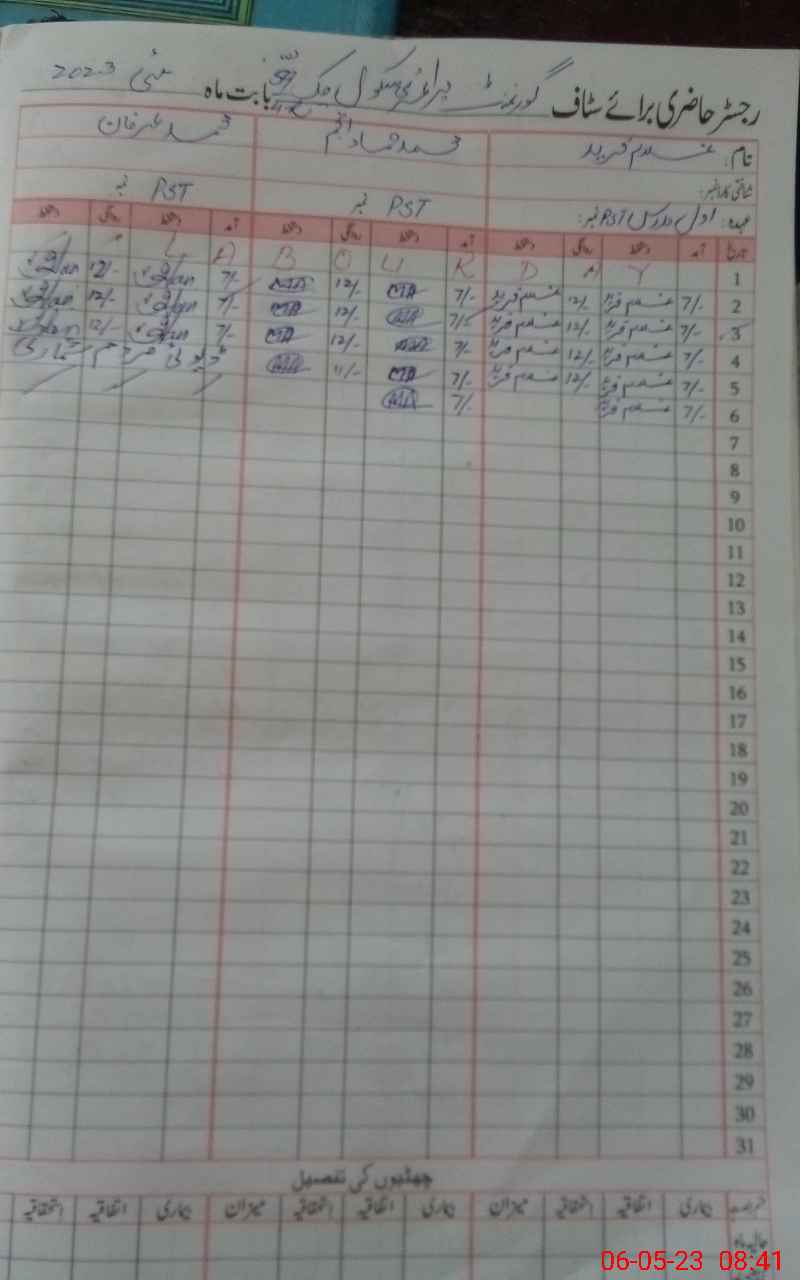 رجسٹر حاضری برائے سٹاف گورنمنٹ پرائمری سکول چک بابت ماہ مئی 2023
نام: غلام فرید محمد حماد انجم محمد عرفان
شناختی کارڈ نمبر:
عہدہ: اول مدرس PST نمبر: PST نمبر PST نمبر
تاریخ آمد دستخط روانگی دستخط آمد دستخط روانگی دستخط آمد دستخط روانگی دستخط
1 L A B O U R D A Y
2 7/- غلام فرید 12/- غلام فرید 7/- 12/- 7/- 12/-
3 7/- غلام فرید 12/- غلام فرید 7/- 12/- 7/- 12/-
4 7/- غلام فرید 12/- غلام فرید 7/- 12/- 7/- 12/-
5 7/- غلام فرید 12/- غلام فرید 7/- 11/- ڈیوٹی مردم شماری
6 7/- غلام فرید 7/-
7
8
9
10
11
12
13
14
15
16
17
18
19
20
21
22
23
24
25
26
27
28
29
30
31
چھٹیوں کی تفصیل
بیماری اتفاقیہ استحقاقیہ میزان بیماری اتفاقیہ استحقاقیہ میزان بیماری اتفاقیہ استحقاقیہ
06-05-23 08:41